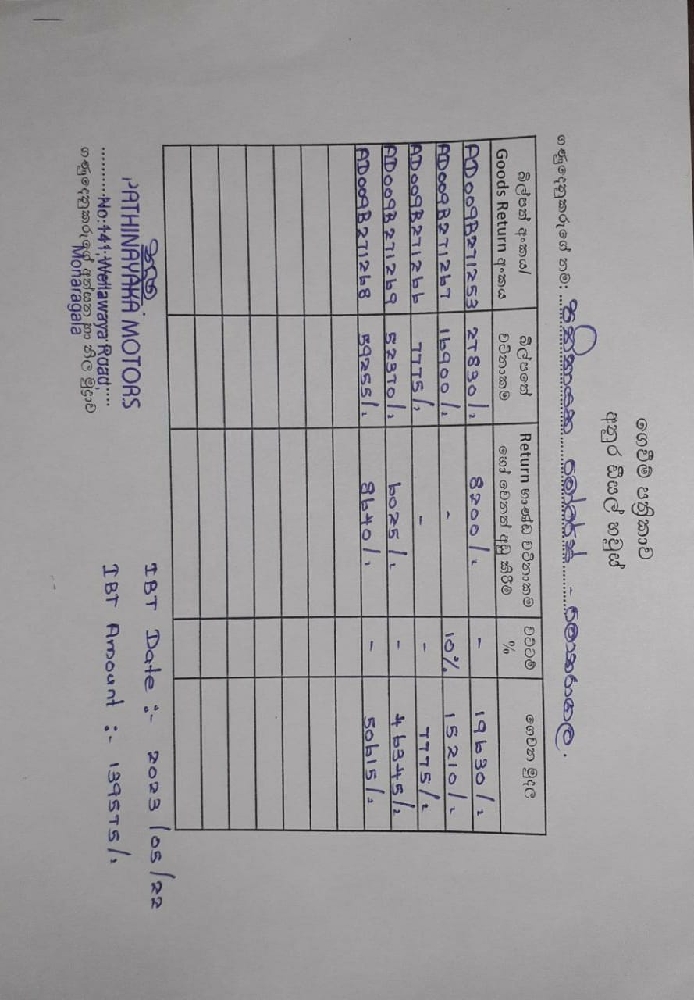 ගෙවීම් පත්‍රිකාව
අනුර ඩීසල් හවුස්
ගණුදෙනුකරුගේ නම: පතිනායක මෝටර්ස් - මොණරාගල.
බිල්පත් අංකය/ Goods Return අංකය | බිල්පතේ වටිනාකම | Return භාණ්ඩ වටිනාකම හෝ වෙනත් අඩු කිරීම් | වට්ටම් % | ගෙවන මුදල
AD009B271253 | 27830/. | 8200/. | - | 19630/.
AD009B271267 | 16900/. | - | 10% | 15210/.
AD009B271266 | 7775/. | - | - | 7775/.
AD009B271269 | 52370/. | 6025/. | - | 46345/.
AD009B271268 | 59255/. | 8640/. | - | 50615/.
IBT Date :- 2023/05/22
IBT Amount :- 139575/.
PATHINAYAKA MOTORS
No:141, Wellawaya Road,
Monaragala
ගණුදෙනුකරුගේ අත්සන හා නිල මුද්‍රාව